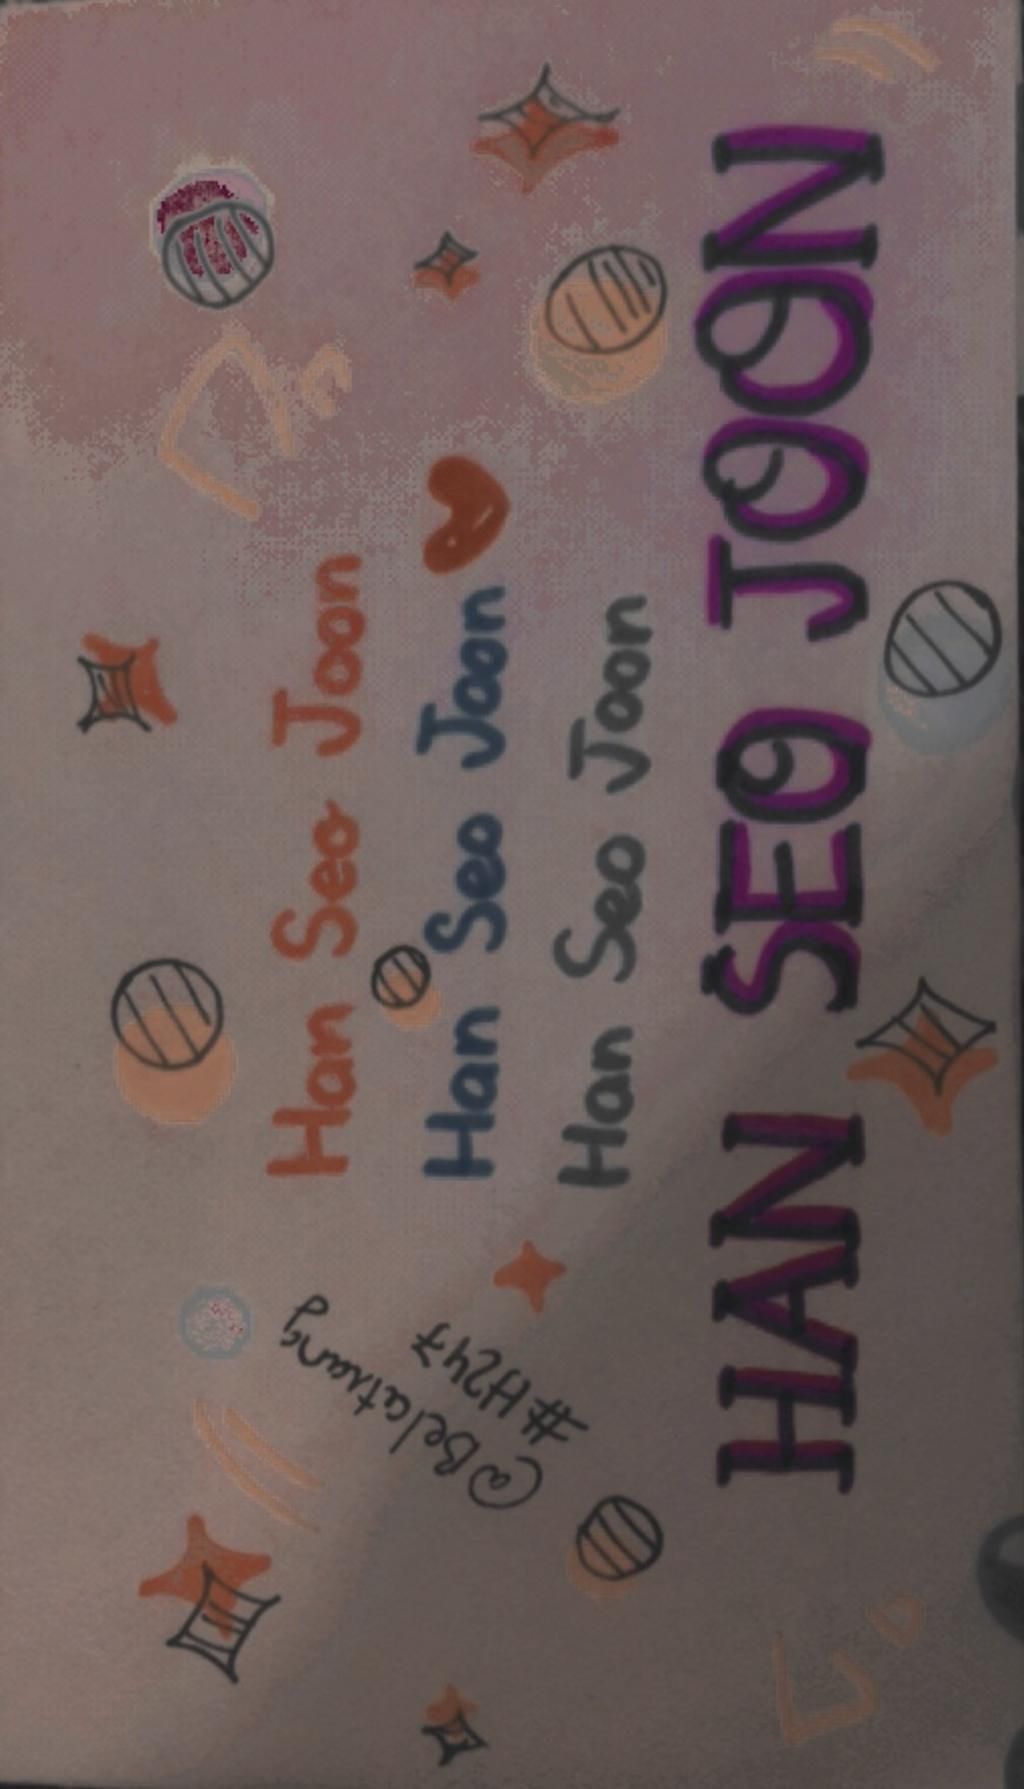 Han Seo Joon
Han Seo Joon
Han Seo Joon
@Belatrang
#H247
HAN SEO JOON